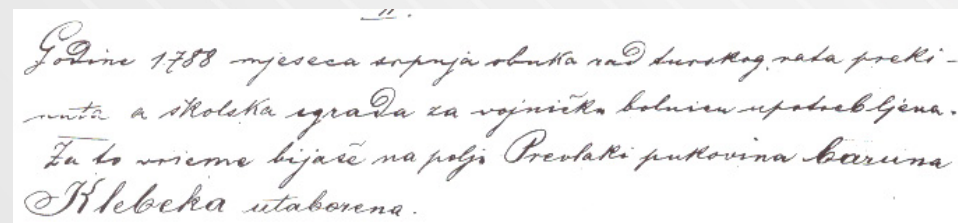 II.
Godine 1788 mjeseca srpnja obuka rad turskog rata preki-
nuta a školska zgrada za vojničku bolnicu upotrebljena.
Za to vrieme bijaše na polju Prevlaki pukovina baruna
Klebeka utaborena.